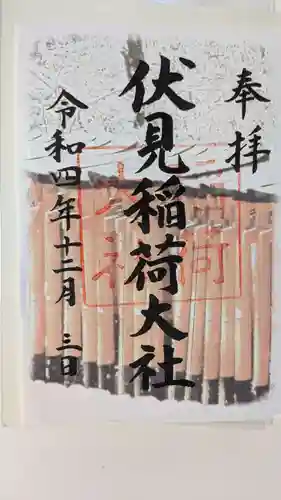 奉拝
伏見稲荷大社
令和四年十二月三日